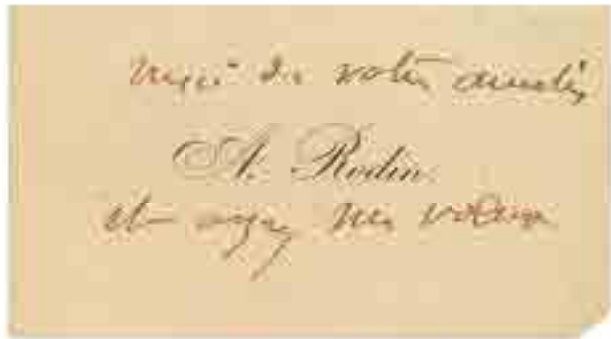 Merci de votre amitié
A. Rodin.
et mes voeux